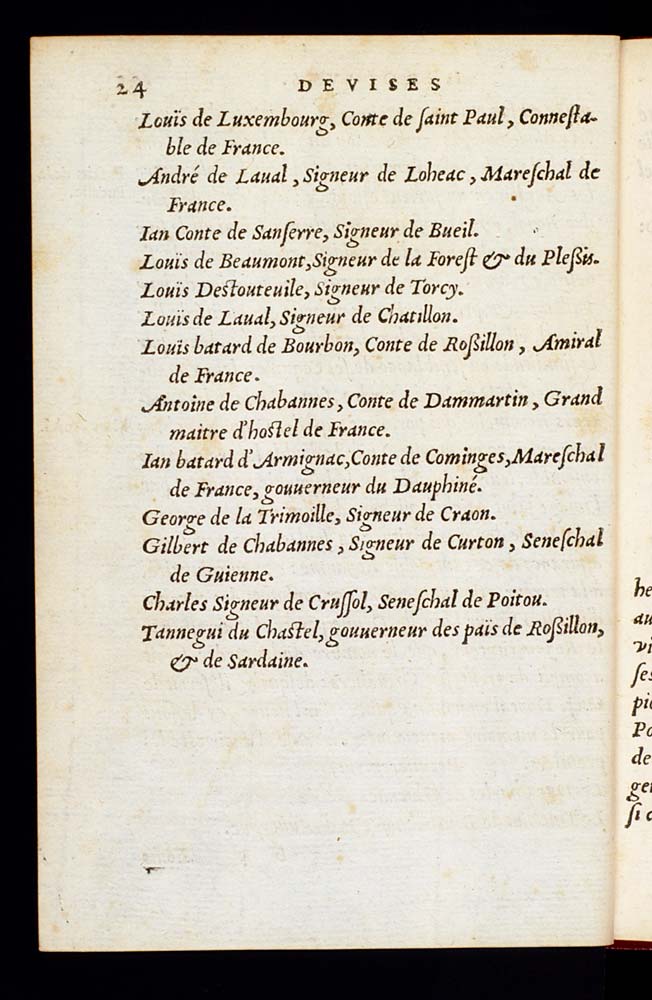 24 DEVISES
Louïs de Luxembourg, Conte de ſaint Paul, Conneſta-
ble de France.
André de Laual, Signeur de Loheac, Mareſchal de
France.
Ian Conte de Sanſerre, Signeur de Bueil.
Louïs de Beaumont, Signeur de la Foreſt & du Pleßis.
Louïs Deſtouteuile, Signeur de Torcy.
Louïs de Laual, Signeur de Chatillon.
Louïs batard de Bourbon, Conte de Roßillon, Amiral
de France.
Antoine de Chabannes, Conte de Dammartin, Grand
maitre d'hoſtel de France.
Ian batard d'Armignac, Conte de Cominges, Mareſchal
de France, gouuerneur du Dauphiné.
George de la Trimoille, Signeur de Craon.
Gilbert de Chabannes, Signeur de Curton, Seneſchal
de Guienne.
Charles Signeur de Cruſſol, Seneſchal de Poitou.
Tannegui du Chaſtel, gouuerneur des païs de Roßillon,
& de Sardaine.